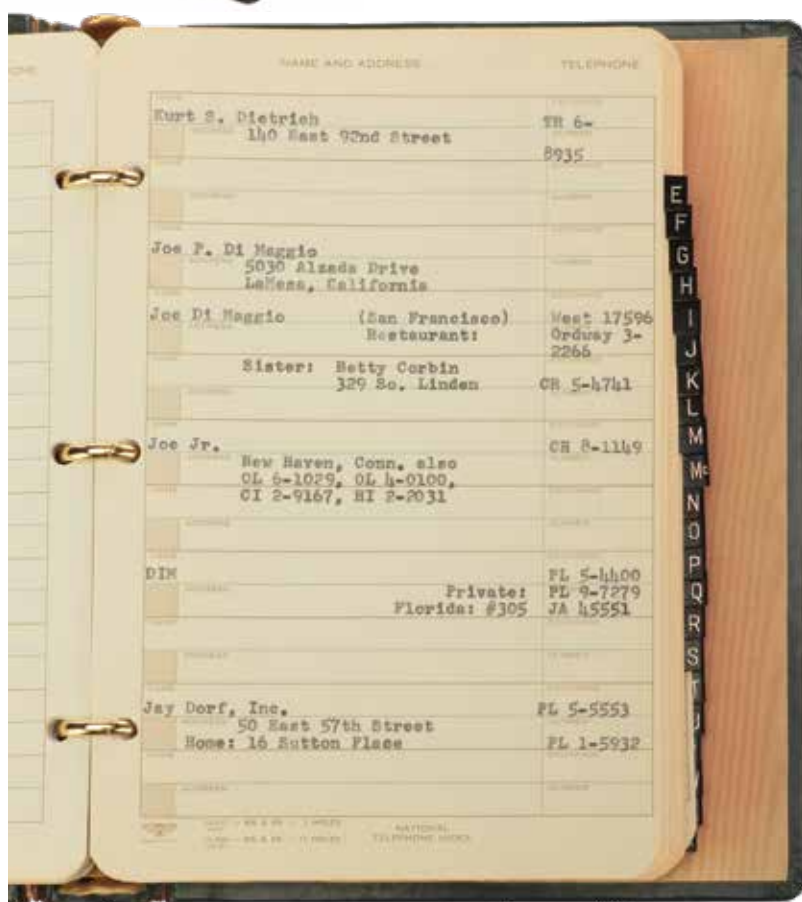 NAME AND ADDRESS TELEPHONE
Kurt S. Dietrich TR 6-
140 East 92nd Street
8935
Joe P. Di Maggio
5030 Alzada Drive
LaMesa, California
Joe Di Maggio (San Francisco) West 17596
Restaurant: Ordway 3-
2266
Sister: Betty Corbin
329 So. Linden CR 5-4741
Joe Jr. CH 8-1149
New Haven, Conn. also
OL 6-1029, OL 4-0100,
CI 2-9167, HI 2-2031
DIM PL 5-4400
Private: PL 9-7279
Florida: #305 JA 45551
Jay Dorf, Inc. PL 5-5553
50 East 57th Street
Home: 16 Sutton Place PL 1-5932
NATIONAL
TELEPHONE INDEX
E
F
G
H
I
J
K
L
M
Mc
N
O
P
Q
R
S
T
U